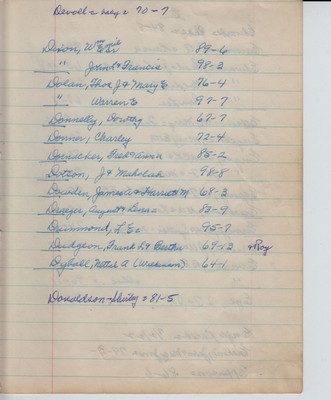 Devoll = Lucy = 70-7
Dixon, Wm 89-6
" Frank & Francis 98-3
Dolan, Thos J & Mary E 76-4
" Warren E 97-7
Donnelly, Dorothy 67-7
Donner, Charley 72-4
Fred & Anna 85-2
Dotson, J & Mahalah 98-8
Dowden, James A & Harriett M. 68-3
Draeger, August & Lena 83-9
Drummond, L. E. 95-7
Dudgeon, Frank L & Bertha 69-13 & Roy
Dyball, Nettie A (Wileman) 64-1
Donaldson - Shirley = 81-5